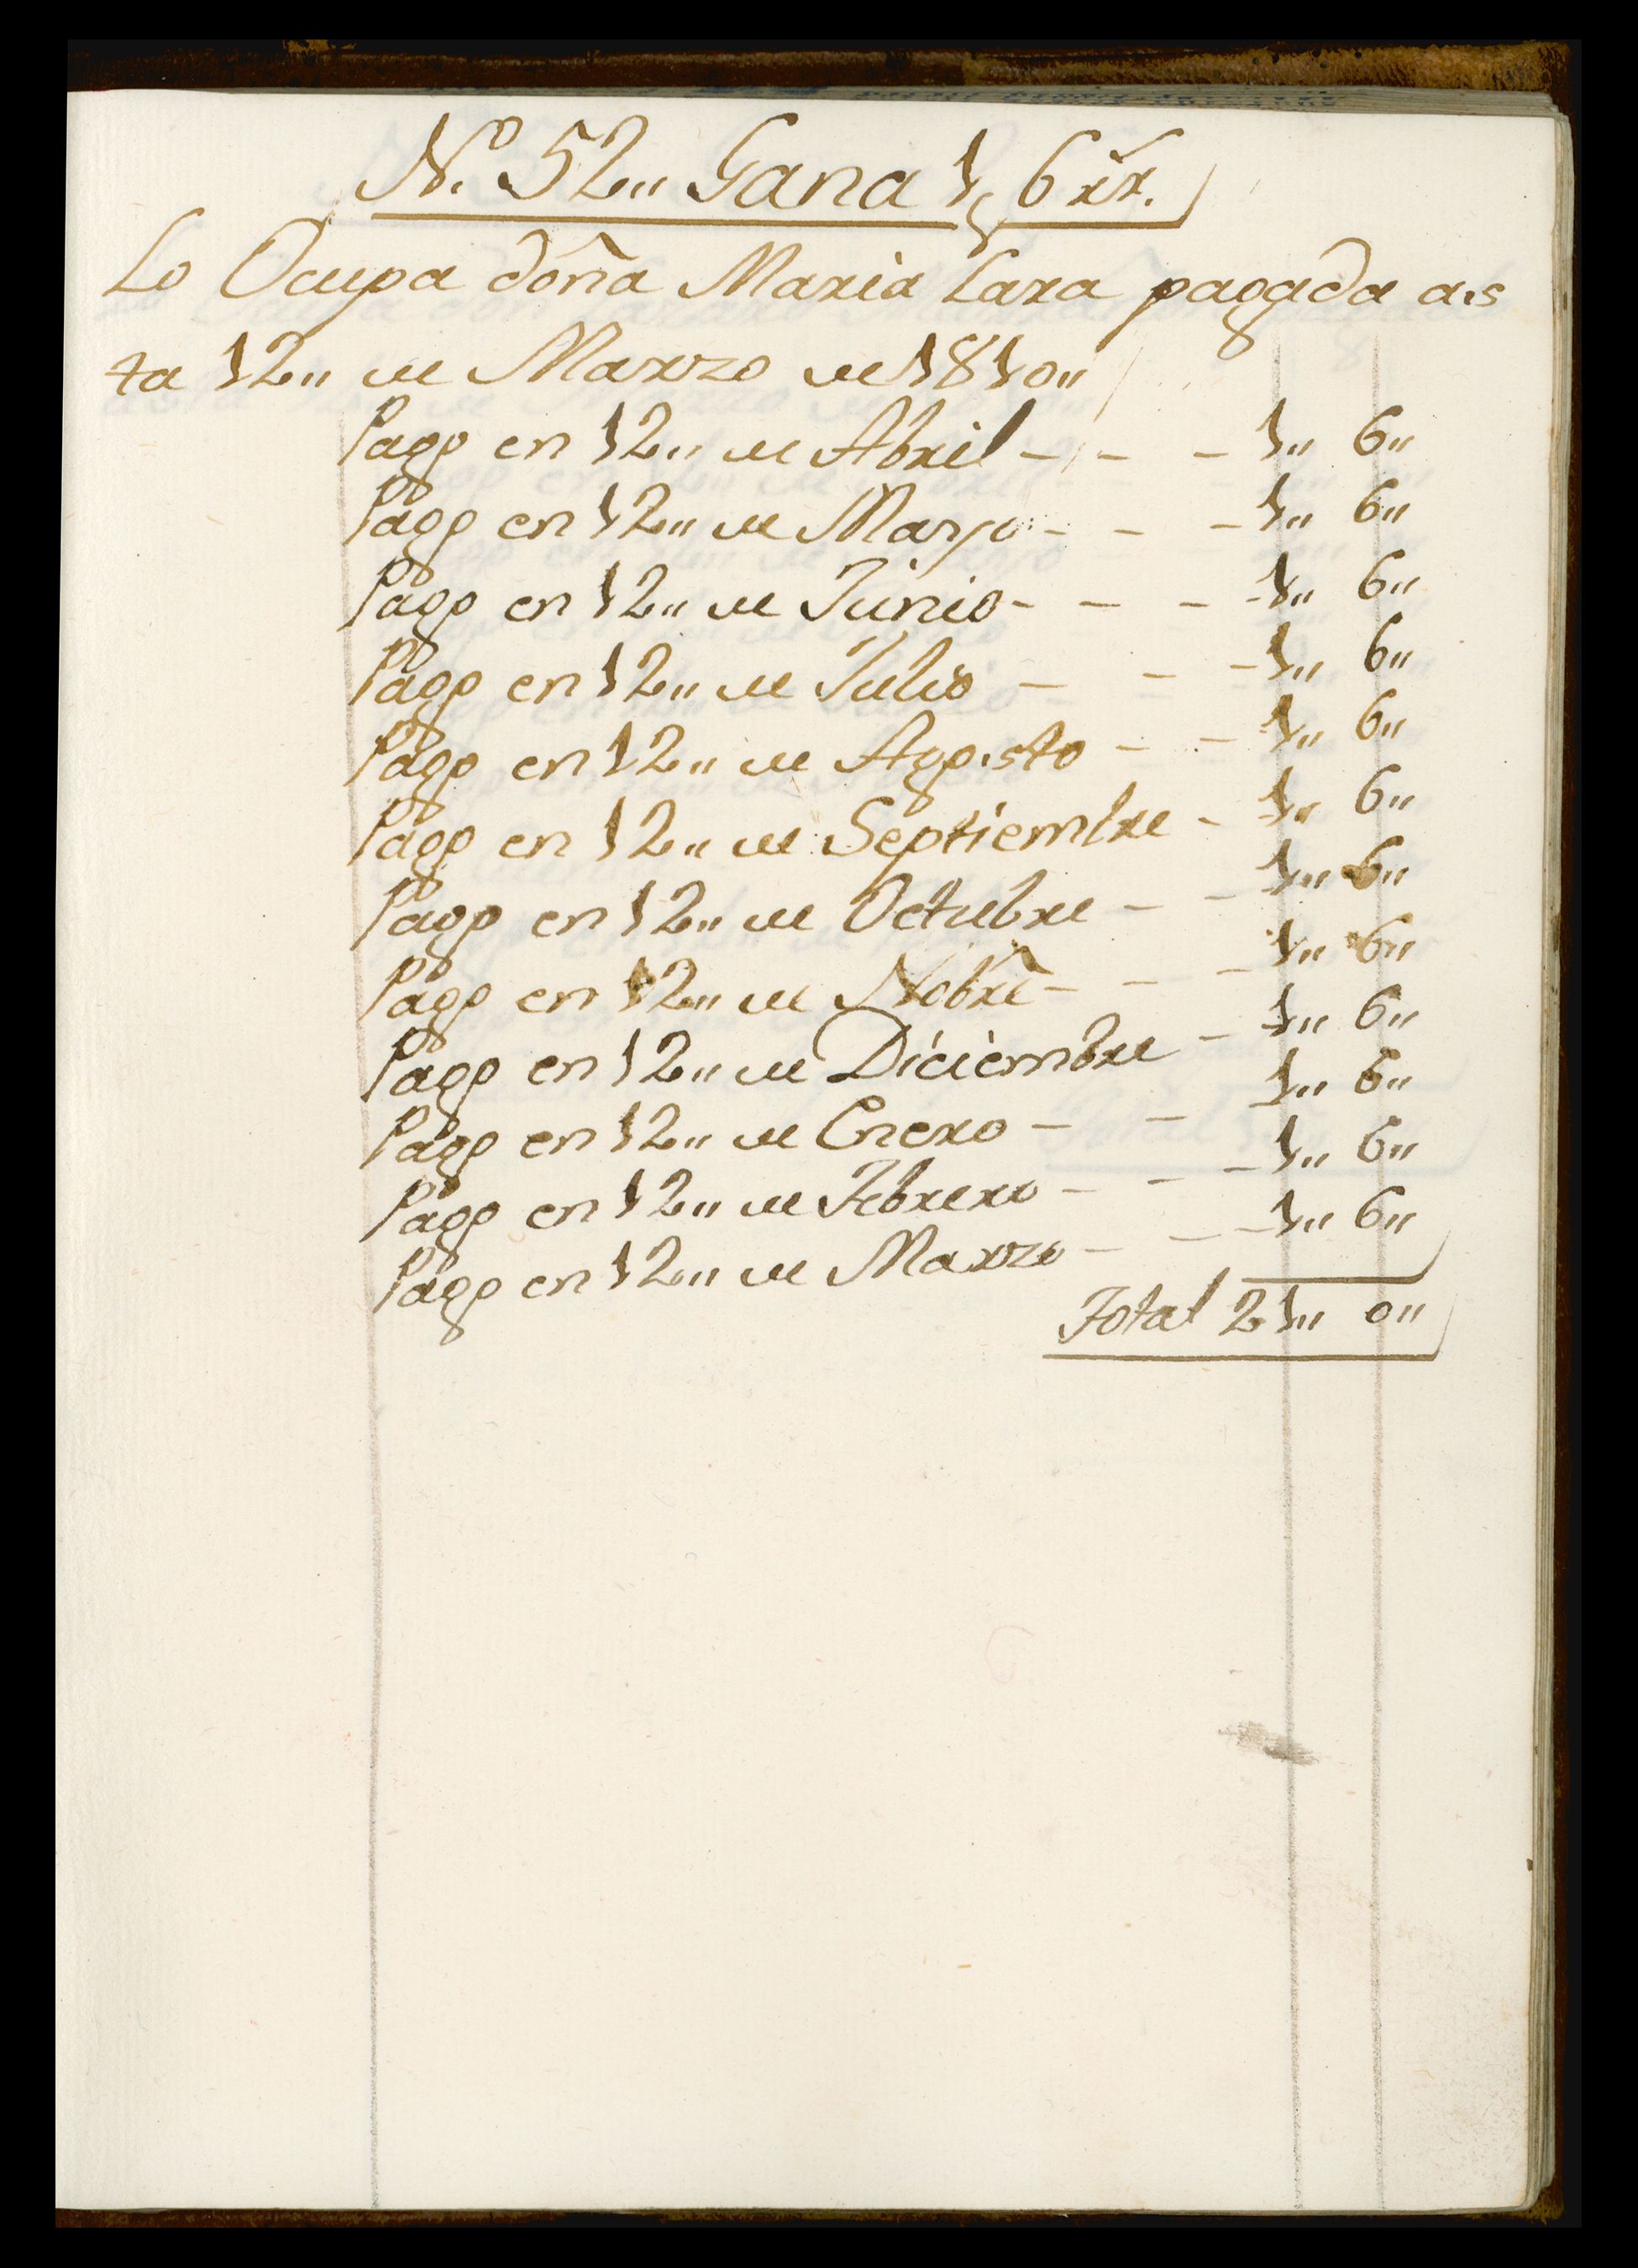 N.º 52,, Gana 1,, 6 rr.
Lo Ocupa doña Maria Lara pagada as
ta 12,, de Marzo de 1810,,
Pago en 12,, de Abril - - - 1,, 6,,
Pago en 12,, de Mayo - - - 1,, 6,,
Pago en 12,, de Junio - - - 1,, 6,,
Pago en 12,, de Julio - - - 1,, 6,,
Pago en 12,, de Agosto - - 1,, 6,,
Pago en 12,, de Septiembre - 1,, 6,,
Pago en 12,, de Octubre - - 1,, 6,,
Pago en 12,, de Nobrẽ - - - 1,, 6,,
Pago en 12,, de Diciembre - 1,, 6,,
Pago en 12,, de Enero - - 1,, 6,,
Pago en 12,, de Febrero - - - 1,, 6,,
Pago en 12,, de Marzo - - - 1,, 6,,
Total 21,, 0,,